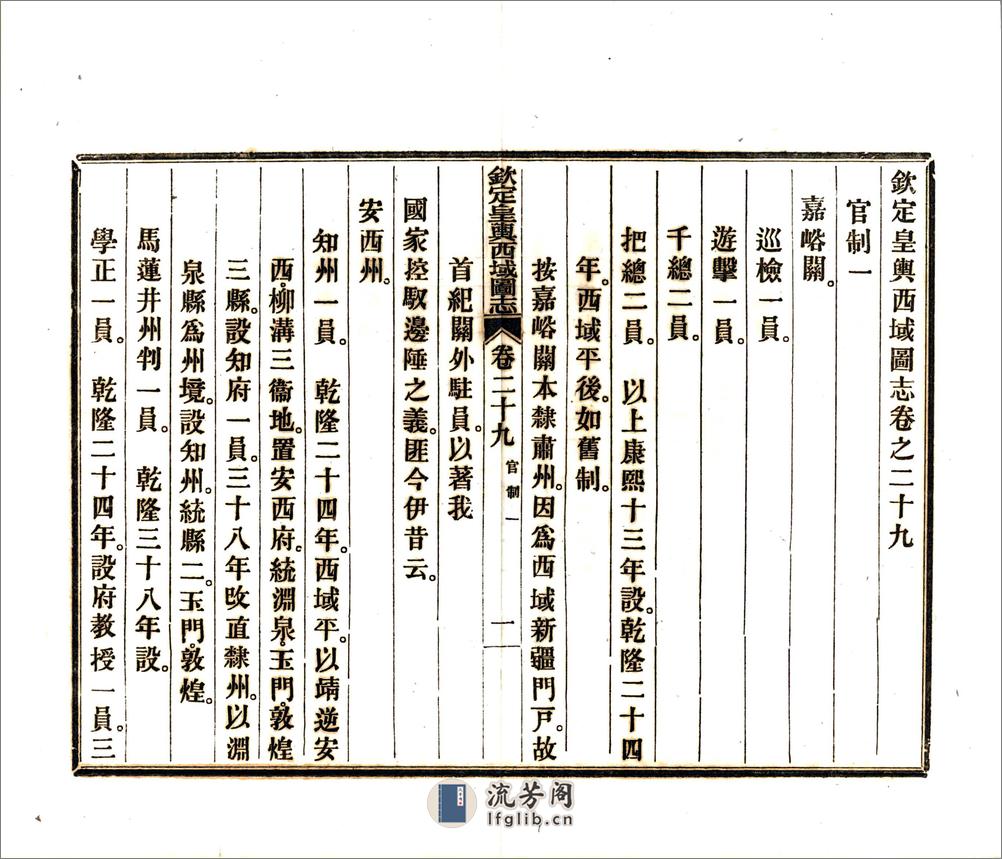 欽定皇輿西域圖志卷之二十九
官制一
嘉峪關。
巡檢一員。
遊擊一員。
千總二員。
把總二員。　以上康熙十三年設。乾隆二十四
年。西域平後。如舊制。
按嘉峪關本隸肅州。因爲西域新疆門戸。故
首紀關外駐員。以著我
欽定皇輿西域圖志　卷二十九　官制一　一
國家控馭邊陲之義。匪今伊昔云。
安西州。
知州一員。　乾隆二十四年。西域平。以靖逆安
西。柳溝三衞地。置安西府。統淵泉。玉門。敦煌
三縣。設知府一員。三十八年改直隸州。以淵
泉縣爲州境。設知州。統縣二。玉門。敦煌。
馬蓮井州判一員。　乾隆三十八年設。
學正一員。　乾隆二十四年。設府教授一員。三
流芳阁
lfglib.cn